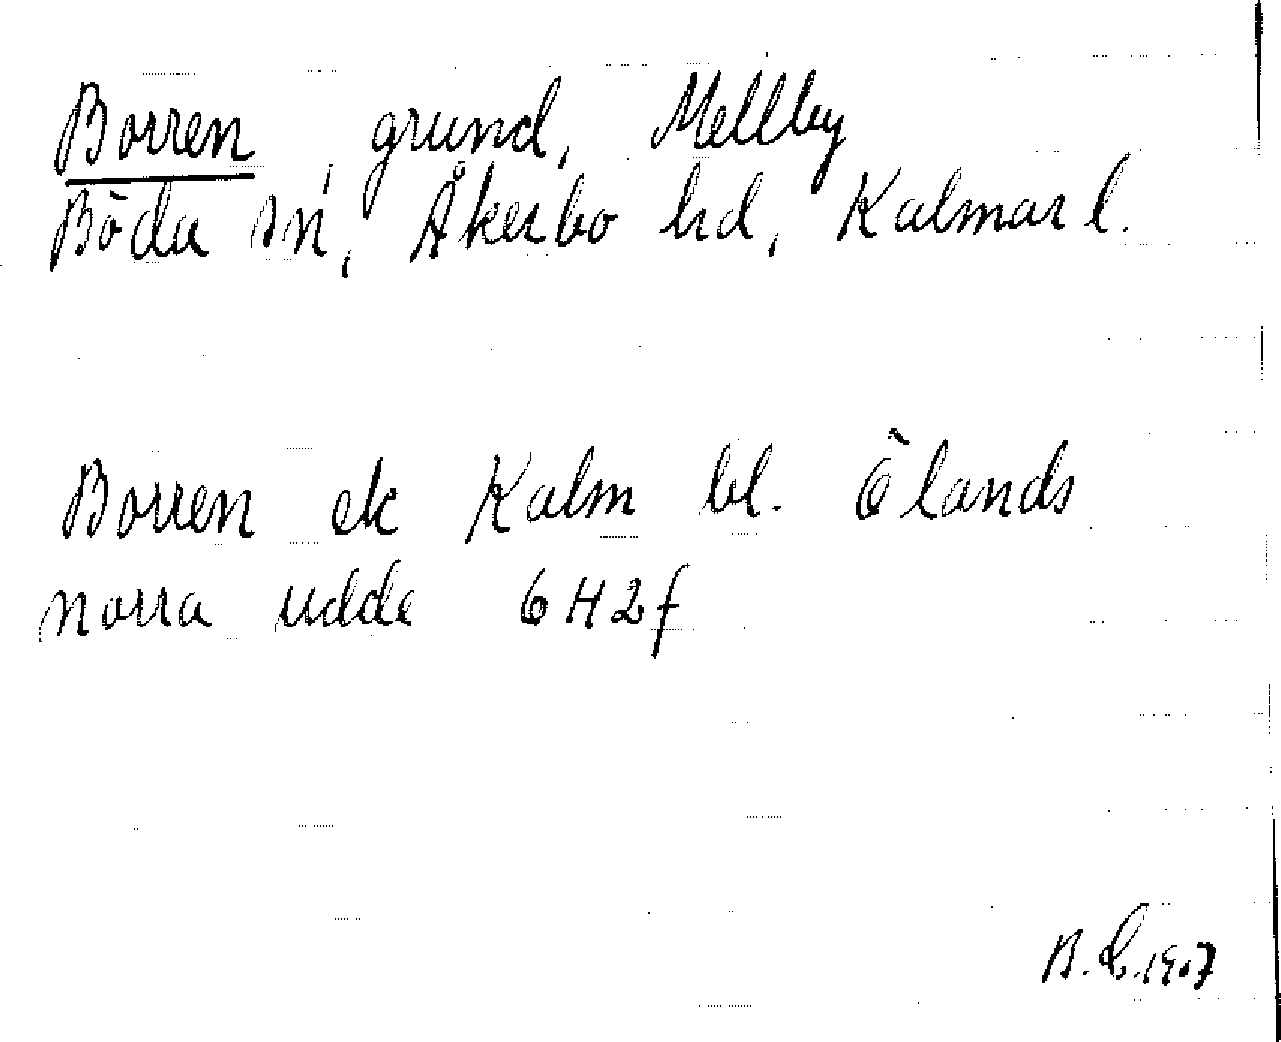 Borren, grund, Mellby
Böda sn, Åkerbo hd, Kalmar l.
Borren ek Kalm bl. Ölands
norra udde 6H2f
B. L.